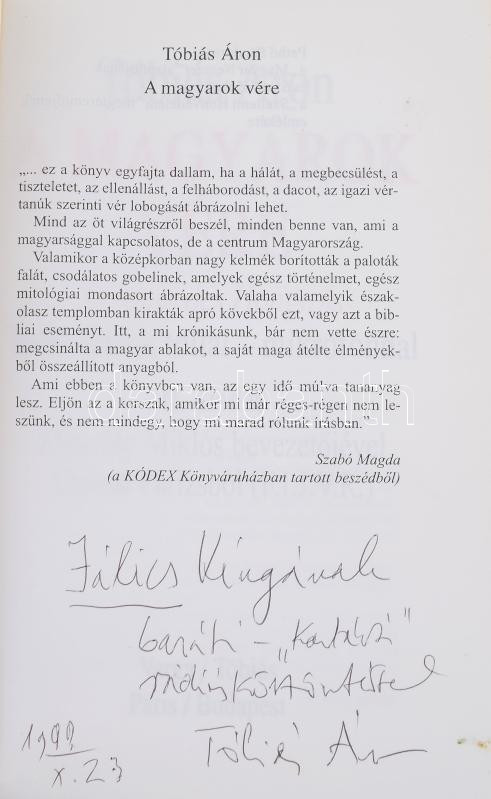 Tóbiás Áron
A magyarok vére
„... ez a könyv egyfajta dallam, ha a hálát, a megbecsülést, a
tiszteletet, az ellenállást, a felháborodást, a dacot, az igazi vér-
tanúk szerinti vér lobogását ábrázolni lehet.
Mind az öt világrészről beszél, minden benne van, ami a
magyarsággal kapcsolatos, de a centrum Magyarország.
Valamikor a középkorban nagy kelmék borították a paloták
falát, csodálatos gobelinek, amelyek egész történelmet, egész
mitológiai mondasort ábrázoltak. Valaha valamelyik észak-
olasz templomban kirakták apró kövekből ezt, vagy azt a bib-
liai eseményt. Itt, a mi krónikásunk, bár nem vette észre:
megcsinálta a magyar ablakot, a saját maga átélte élmények-
ből összeállított anyagból.
Ami ebben a könyvben van, az egy idő múlva tananyag
lesz. Eljön az a korszak, amikor mi már réges-régen nem le-
szünk, és nem mindegy, hogy mi marad rólunk írásban.”
Szabó Magda
(a KÓDEX Könyváruházban tartott beszédből)
Jálics Kingának
baráti –
rádiós köszöntéssel
Tóbiás Áron
X. 23
darabanth